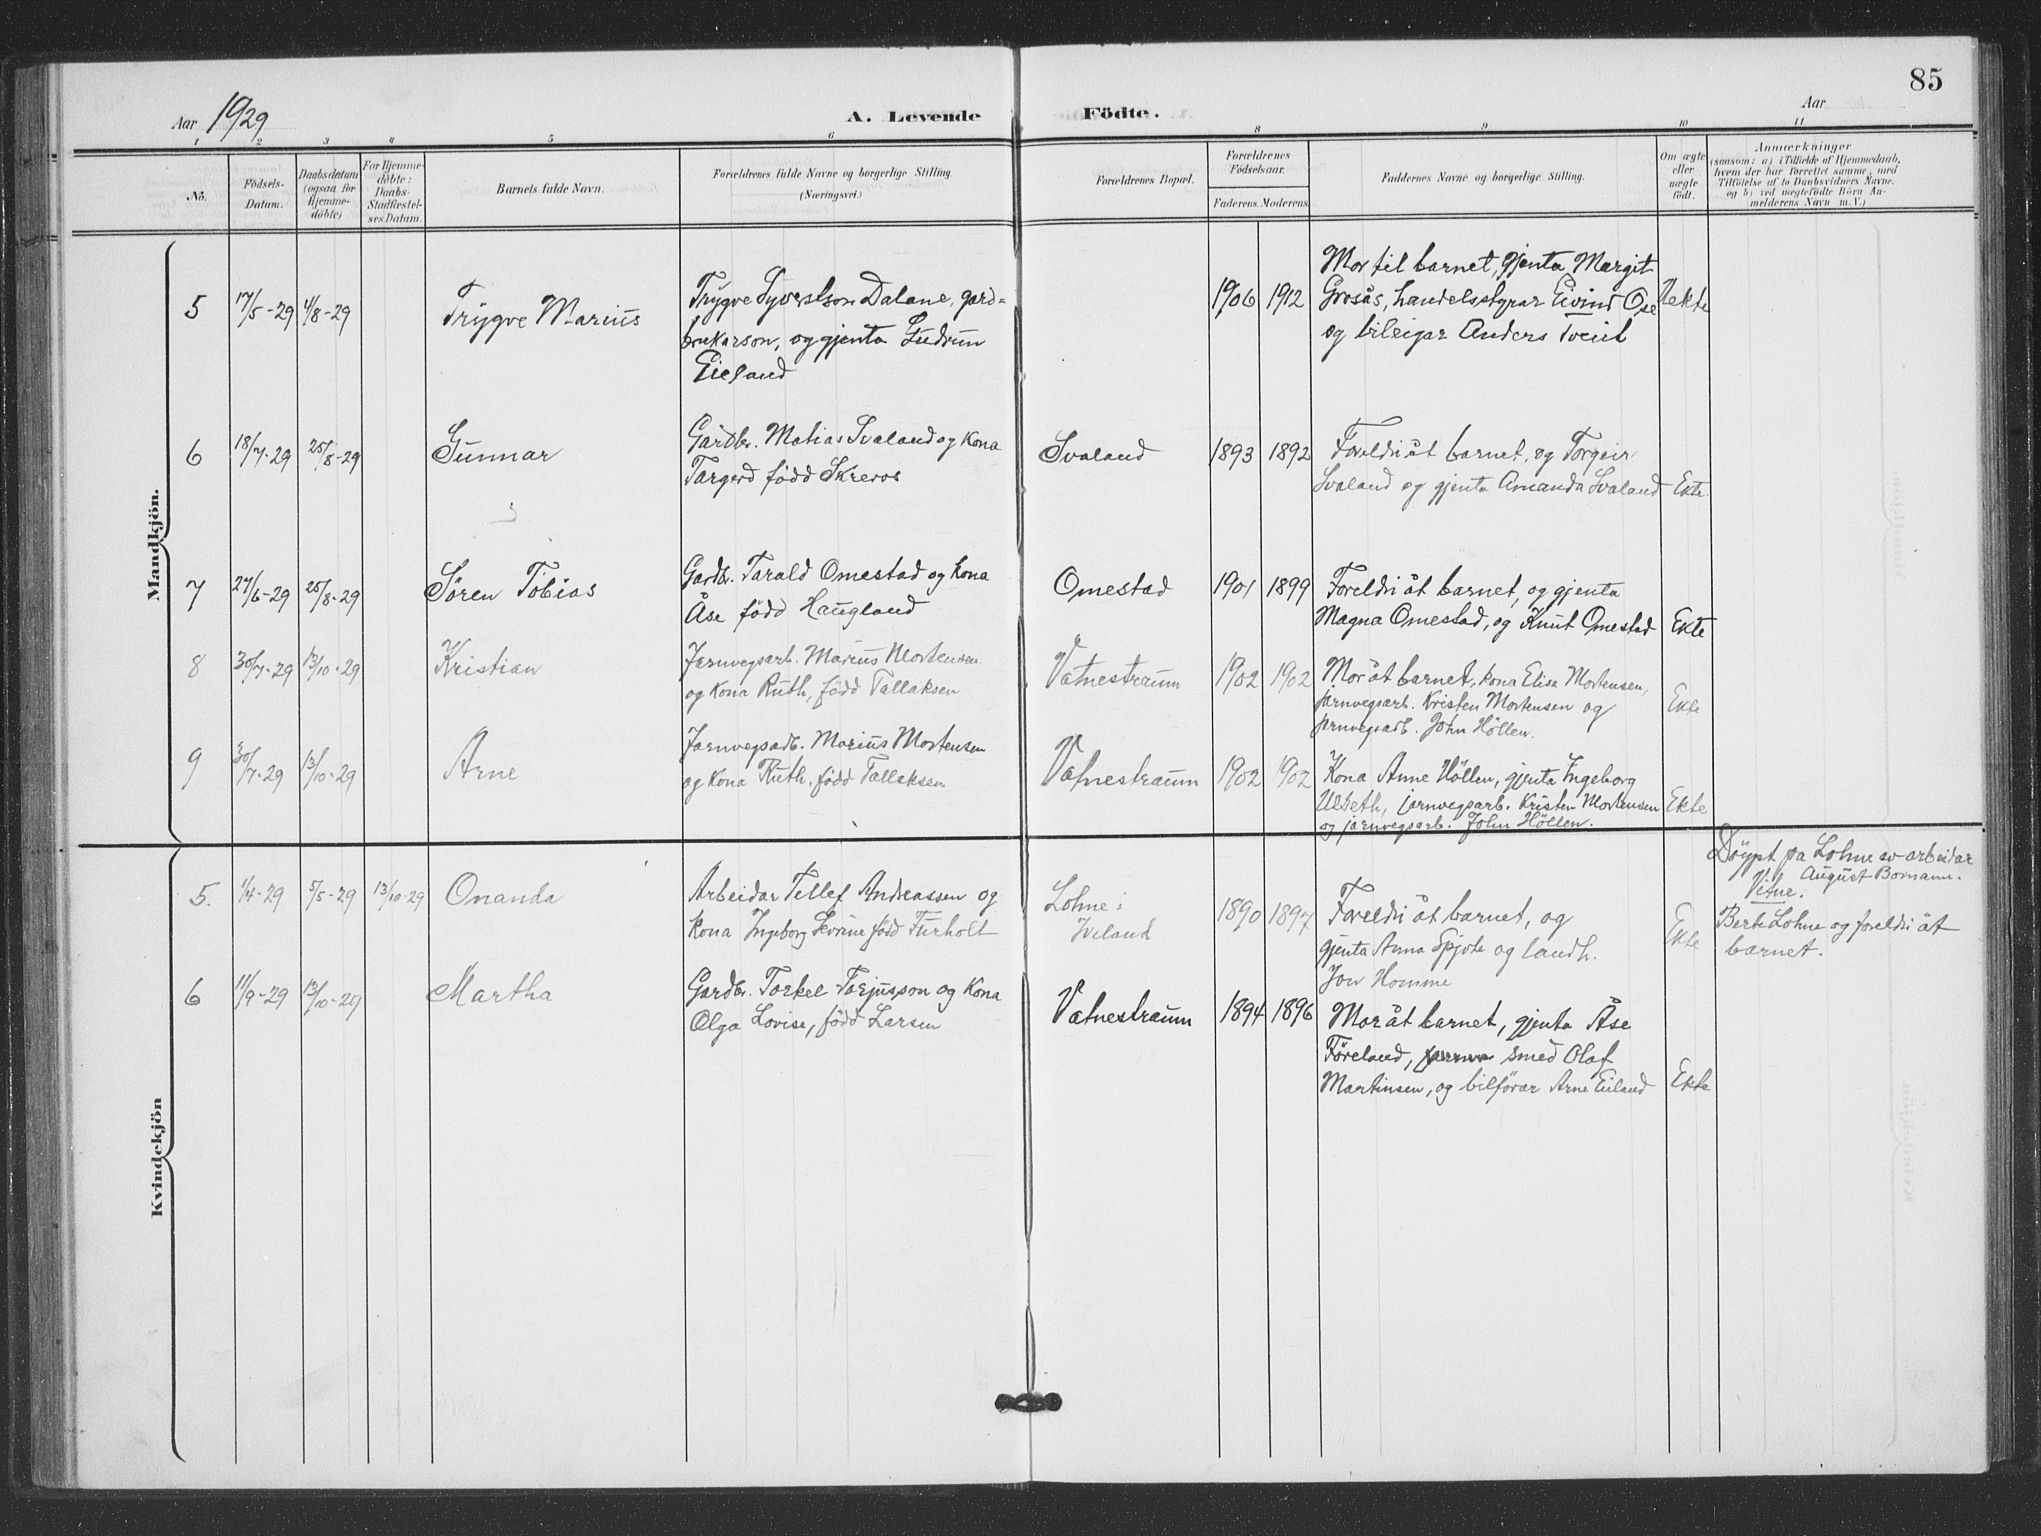 85
Aar 1929
A. Levende Födte.
Aar
1 2 3 4 5 6 8 9 10 11
No.
Födsels-
Datum.
Daabsdatum
(ogsaa for
Hjemme-
döbte)
For Hjemme-
döbte:
Daabs-
Stadfæstel-
ses Datum.
Barnets fulde Navn.
Forældrenes fulde Navne og borgerlige Stilling
(Næringsvei.)
Forældrenes Bopæl.
Forældrenes
Födselsaar.
Faderens. Moderens.
Faddernes Navne og borgerlige Stilling.
Om ægte
eller
uægte
født.
Anmærkninger
(saasom: a) i Tilfælde af Hjemmedaab,
hvem der har forrettet samme, med
Tilföielse af to Daabsvidners Navne.
og b) ved uægtefödte Börn An-
melderens Navn m. V.)
Mandkjön.
5 17/5-29 4/8-29 Trygve Marius
Trygve Syvertson Dalane, gard-
brukarson, og gjenta Gudrun
Eieland
1906 1912
Mor til barnet, gjenta Margit
Grosås, handelsstyrar Eivind Ose
og bileigar Anders Tveit
Uekte
6 18/7-29 25/8-29 Gunnar
Gardbr. Matias Svaland og kona
Targerd født Skreros
Svaland 1893 1892
Foreldri åt barnet, og Torgeir
Svaland og gjenta Amanda Svaland
Ekte.
7 27/6-29 25/8-29 Søren Tobias
Gardbr. Tarald Omestad og kona
Åse født Haugland
Omestad 1901 1899
Foreldri åt barnet, og gjenta
Magna Omestad, og Knut Omestad
Ekte
8 30/7-29 13/10-29 Kristian
Jarnvegsarb. Marius Mortensen
og kona Ruth, født Tallaksen
Vatnestraum 1902 1902
Mor åt barnet, kona Elise Mortensen,
jarnvegsarb. Kristen Mortensen og
jarnvegsarb. John Höllen.
Ekte
9 30/7-29 13/10-29 Arne
Jarnvegsarb. Marius Mortensen
og kona Ruth, født Tallaksen
Vatnestraum 1902 1902
Kona Anne Höllen, gjenta Ingeborg
jarnvegsarb. Kristen Mortensen
og jarnvegsarb. John Höllen.
Ekte
Kvindekjön
5. 1/4-29 5/5-29 13/10-29 Onanda
Arbeidar Tellef Andreassen og
kona Ingeborg Severine født Furholt
Lohne i
Iveland
1890 1897
Foreldri åt barnet, og
gjenta Anna Spjote og landh.
Jon Homme
Ekte
Döypt pa Lohne av arbeidar
August Bomann.
Vitne.
Berte Lohne og foreldri åt
barnet.
6 11/9-29 13/10-29 Martha
Gardbr. Torkel Torjusson og kona
Olga Lovise, født Larsen
Vatnestraum 1894 1896
Mor åt barnet, gjenta Åse
Föreland, smed Olaf
Martinsen, og bilförar Arne Eieland
Ekte